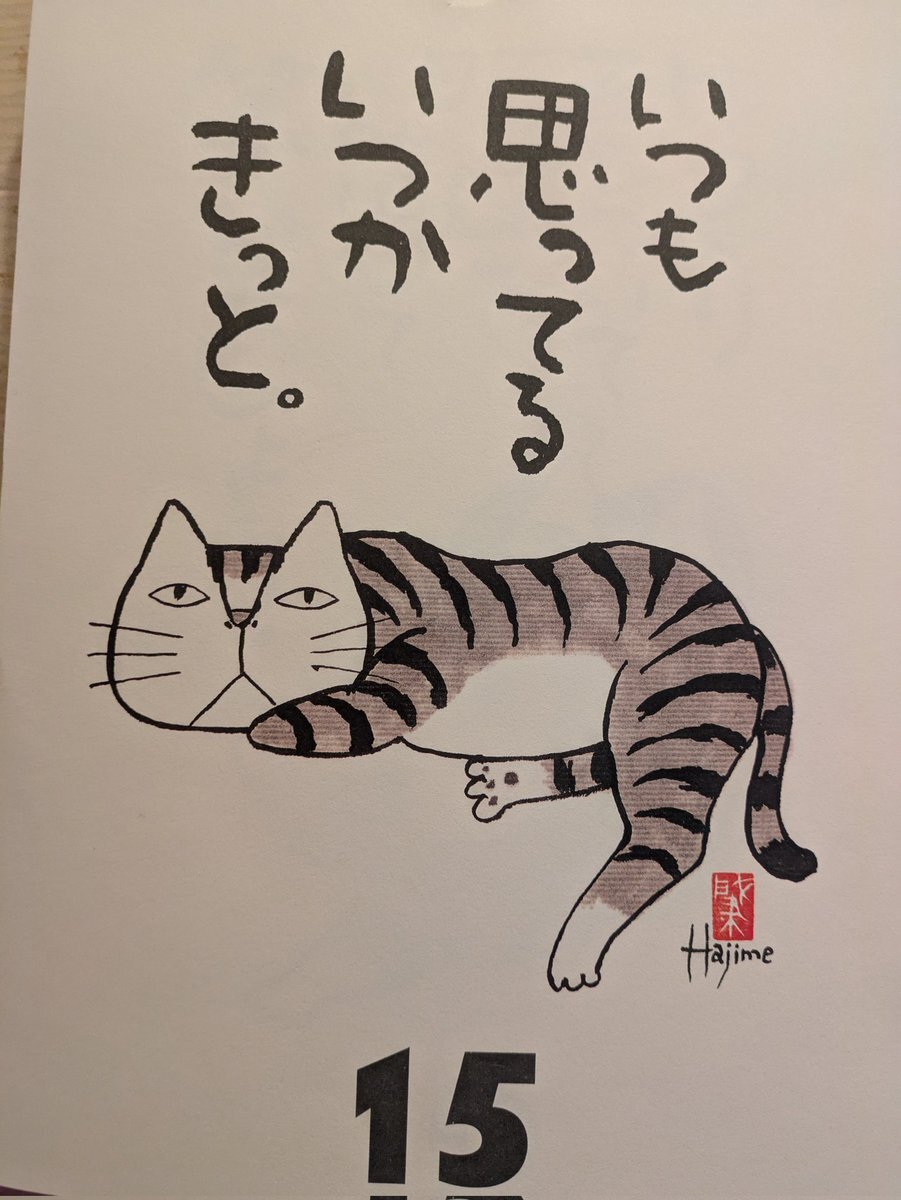 いつも
思ってる
いつか
きっと。
Hajime
15